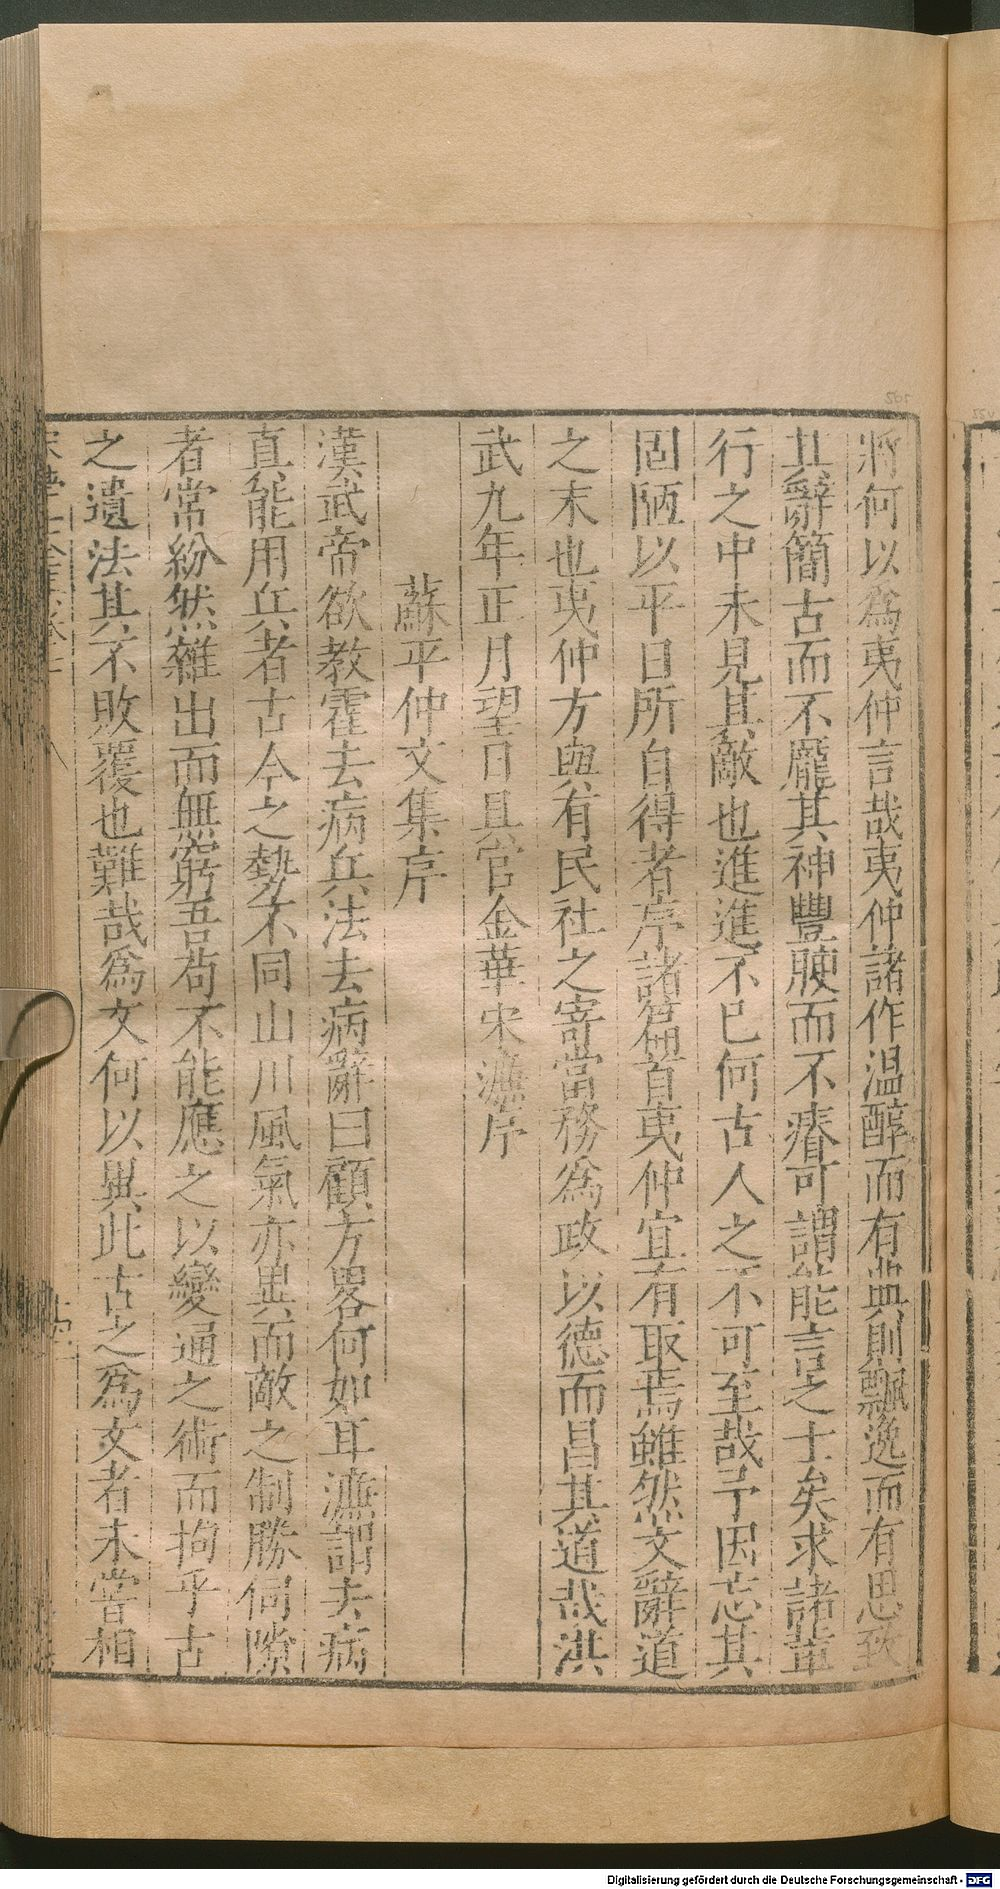 將何以為夷仲言哉夷仲諸作温醇而有典則飄逸而有思致
其辭簡古而不龐其神豐腴而不瘠可謂能言之士矣求諸輩
行之中未見其敵也進進不已何古人之不可至哉予因忘其
固陋以平日所自得者序諸篇首夷仲宜有取焉雖然文辭道
之末也夷仲方與有民社之寄當務為政以德而昌其道哉洪
武九年正月望日具官金華宋濂序
蘇平仲文集序
漢武帝欲教霍去病兵法去病辭曰顧方畧何如耳濂謂去病
真能用兵者古今之勢不同山川風氣亦異而敵之制勝伺隙
者常紛然雜出而無窮吾苟不能應之以變通之術而拘乎古
之遺法其不敗覆也難哉為文何以異此古之為文者未嘗相
Digitalisierung gefördert durch die Deutsche Forschungsgemeinschaft - DFG